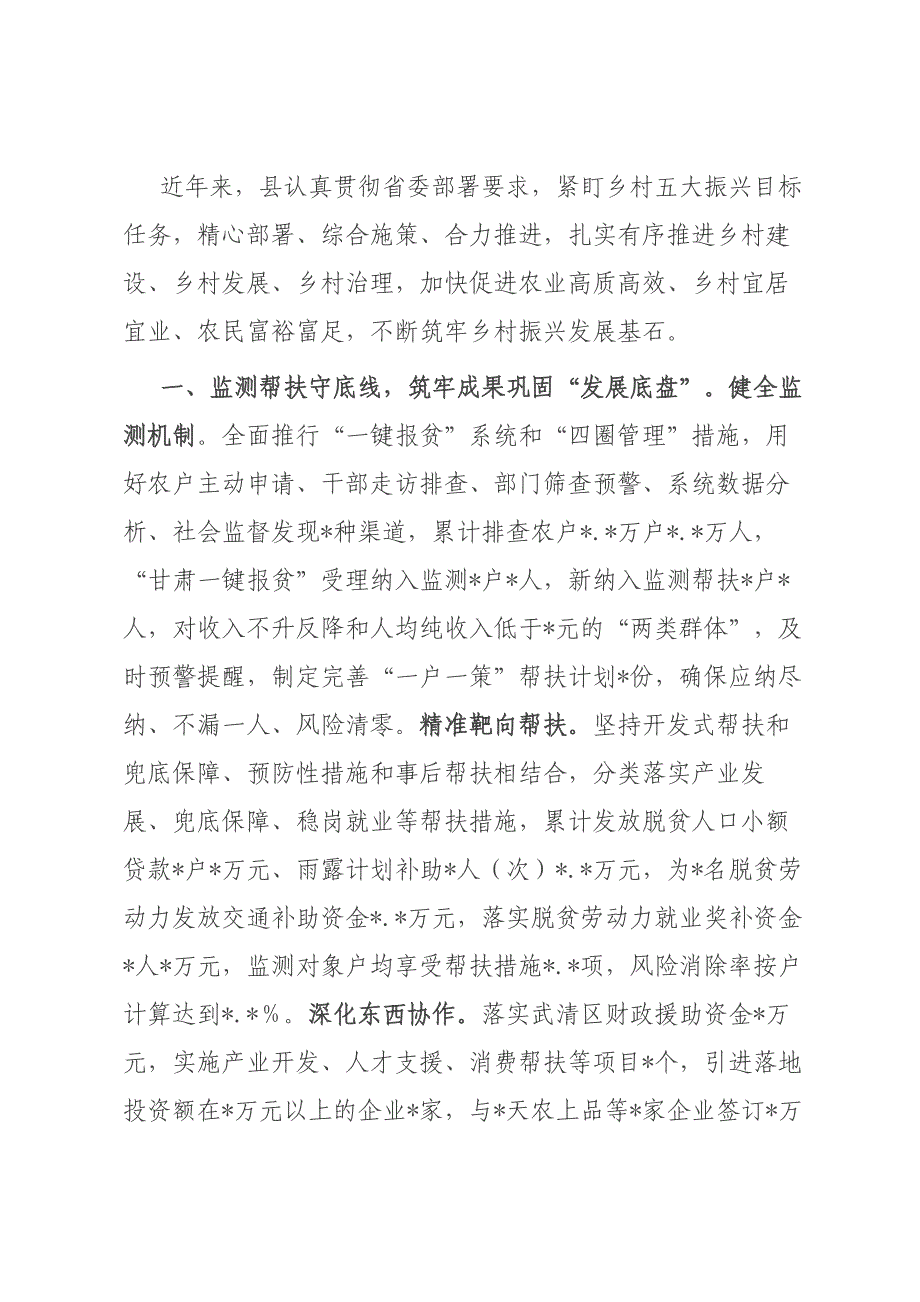 近年来，县认真贯彻省委部署要求，紧盯乡村五大振兴目标
任务，精心部署、综合施策、合力推进，扎实有序推进乡村建
设、乡村发展、乡村治理，加快促进农业高质高效、乡村宜居
宜业、农民富裕富足，不断筑牢乡村振兴发展基石。
一、监测帮扶守底线，筑牢成果巩固“发展底盘”。健全监
测机制。全面推行“一键报贫”系统和“四圈管理”措施，用
好农户主动申请、干部走访排查、部门筛查预警、系统数据分
析、社会监督发现*种渠道，累计排查农户*.*万户*.*万人，
“甘肃一键报贫”受理纳入监测*户*人，新纳入监测帮扶*户*
人，对收入不升反降和人均纯收入低于*元的“两类群体”，及
时预警提醒，制定完善“一户一策”帮扶计划*份，确保应纳尽
纳、不漏一人、风险清零。精准靶向帮扶。坚持开发式帮扶和
兜底保障、预防性措施和事后帮扶相结合，分类落实产业发
展、兜底保障、稳岗就业等帮扶措施，累计发放脱贫人口小额
贷款*户*万元、雨露计划补助*人（次）*.*万元，为*名脱贫劳
动力发放交通补助资金*.*万元，落实脱贫劳动力就业奖补资金
*人*万元，监测对象户均享受帮扶措施*.*项，风险消除率按户
计算达到*.*%。深化东西协作。落实武清区财政援助资金*万
元，实施产业开发、人才支援、消费帮扶等项目*个，引进落地
投资额在*万元以上的企业*家，与*天农上品等*家企业签订*万